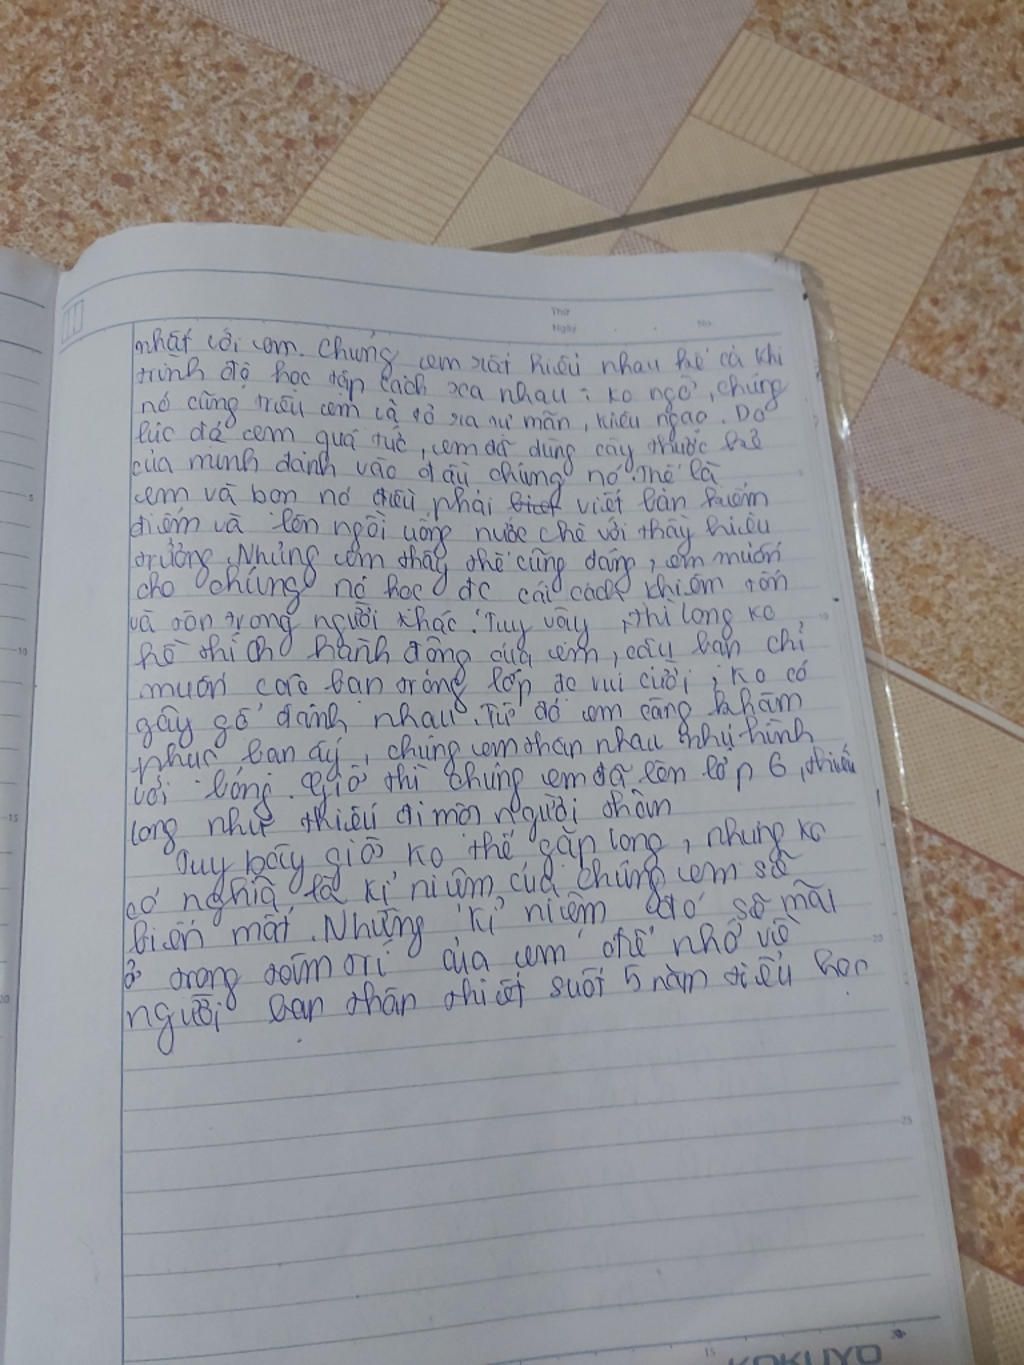 Thứ
Ngày . . No.
nhất với em. Chúng em rất hiểu nhau kể cả khi
trình độ học tập cách xa nhau: ko ngờ, chúng
nó cũng trêu em và tỏ ra tự mãn, kiêu ngạo. Do
lúc đó em quá tức, em đã dùng cây thước kẻ
của mình đánh vào đầu chúng nó. Thế là
em và bọn nó đều phải viết bản kiểm
điểm và lên ngồi uống nước chè với thầy hiệu
trưởng. Nhưng em thấy thế cũng đáng, em muốn
cho chúng nó học đc cái cách khiêm tốn
và tôn trọng người khác. Tuy vậy, thì long ko
hề thích hành động của em, cậu bạn chỉ
muốn các bạn trong lớp đc vui cười, ko có
gây gổ đánh nhau. Từ đó em càng khâm
phục bạn ấy, chúng em thân nhau như hình
với bóng. Giờ thì chúng em đã lên lớp 6, thiếu
long như thiếu đi một người thân
Tuy bây giờ ko thể gặp long, nhưng ko
có nghĩa là kỉ niệm của chúng em sẽ
biến mất. Những kỉ niệm đó sẽ mãi
ở trong tâm trí của em để nhớ về
người bạn thân thiết suốt 5 năm tiểu học
5
10
15
20
5
10
20
25
15
KOKUYO